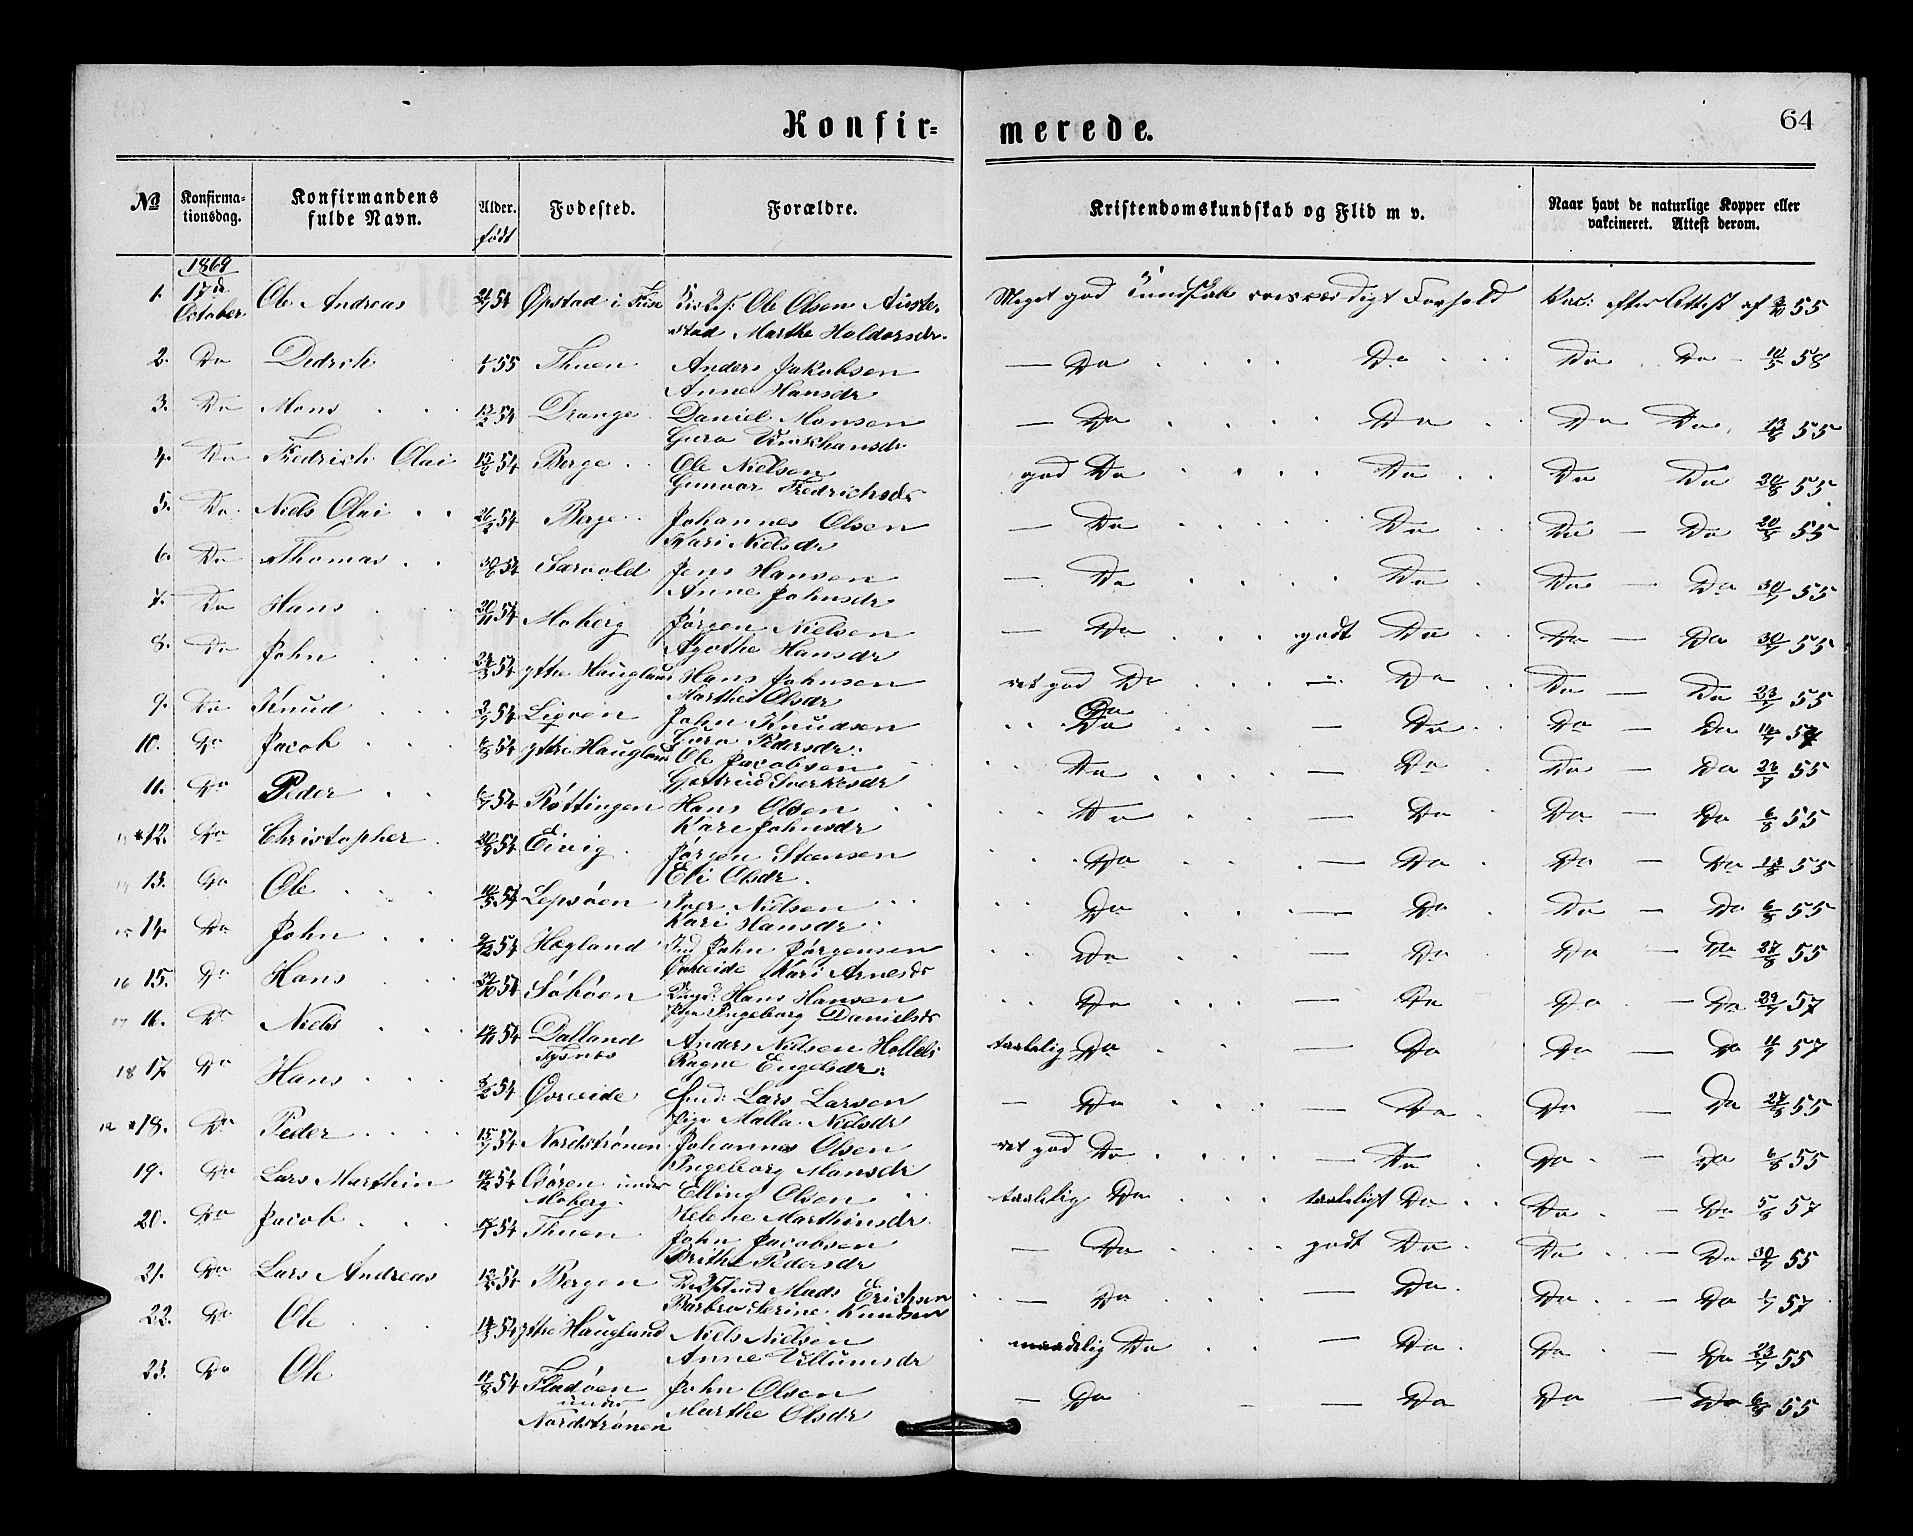 Konfir=
merede.
64
No
Konfirma-
tionsdag.
Konfirmandens
fulde Navn.
Alder.
født
Fødested.
Forældre.
Kristendomskundskab og Flid m v.
Naar havt de naturlige Kopper eller
vakcineret. Attest derom.
1869
1. 17de October Ole Andreas 54 Øpstad i Ole Olsen
Marthe Haldorsdr.
Meget god Kundskab Forhold Vac: efter Attest af 55
2. Do Dedrich 55 Thuen Anders Jakobsen
Anne Hansdr
— Do Do Do Do 58
3. Do Mons 54 Drange Daniel Monsen
Guro
— Do Do Do Do 13/8 55
4. Do Fredrich Olai 54 Berge Ole Nielsen
Gunvor Fredrichsdr
god Do Do Do Do 20/8 55
5. Do Niels Olai 54 Berge Johannes Olsen
Kari Nielsdr
— Do Do Do — Do 20/8 55
6. Do Thomas 54 Sørvold Jens Hansen
Anne Johnsdr
— Do Do Do — Do 30/7 55
7. Do Hans 20/11 54 Moberg Jørgen Nielsen
Agothe Hansdr
— Do godt Do Do — Do 30/7 55
8. Do John 54 ytre Haugland Hans Johnsen
Marthe Olsdr
ret god Do — Do Do — Do 23/7 55
9. Do Knud 54 Ligven John Knudsen
Guro Pedersdr.
Do — Do Do — Do 57
10. Do Jacob 54 ytre Haugland Ole Jacobsen
Gjertrud Sverkesdr
Do — Do Do — Do 23/7 55
11. Do Peder 54 Røttingen Hans Olsen
Kari Johnsdr
Do — Do Do — Do 6/8 55
12. Do Christopher 54 Eivig Jørgen Steensen
Eli Olsdr.
Do — Do Do — Do 55
13. Do Ole 54 Lepsøen Iver Nielsen
Kari Hansdr
Do — Do Do — Do 6/8 55
14. Do John 54 Hegland John Jørgensen
Kari Arnesdr
Do — Do Do — Do 27/8 55
16 15. Do Hans 54 Søhøen Hans Hansen
Ingeborg Danielsdr
Do — Do Do — Do 57
16. Do Niels 54 Dalland
Tysnes Anders Nielsen
Ragne Engelsdr.
taalelig Do — Do Do — Do 57
18 17. Do Hans 54 Øvreide Lars Larsen
Pige Malla Nielsdr
— Do — Do Do — Do 27/8 55
18. Do Peder 15/7 54 Nordstrønen Johannes Olsen
Ingeborg Monsdr
ret god Do — Do Do — Do 6/8 55
19. Do Lars Marthin 54 Osøren under
Moberg. Elling Olsen
Helene Marthinsdr.
taalelig Do taaleligt Do Do — Do 5/8 57
20. Do Jacob 54 Thuen John Jacobsen
Brithe Pedersdr
— Do godt Do Do — Do 30/7 55
21. Do Lars Andreas 54 Bergen Mads Erichsen
Barbra Serine Knudsen
— Do — Do Do — Do 1/7 57
22. Do Ole 54 ytre Haugland Niels Nielsen
Anne Villumsdr
maadelig Do — Do Do — Do 23/7 55
23. Do Ole 54 Fladøen
under
Nordstrønen John Olsen
Marthe Olsdr
— Do — Do Do — Do 6/8 55